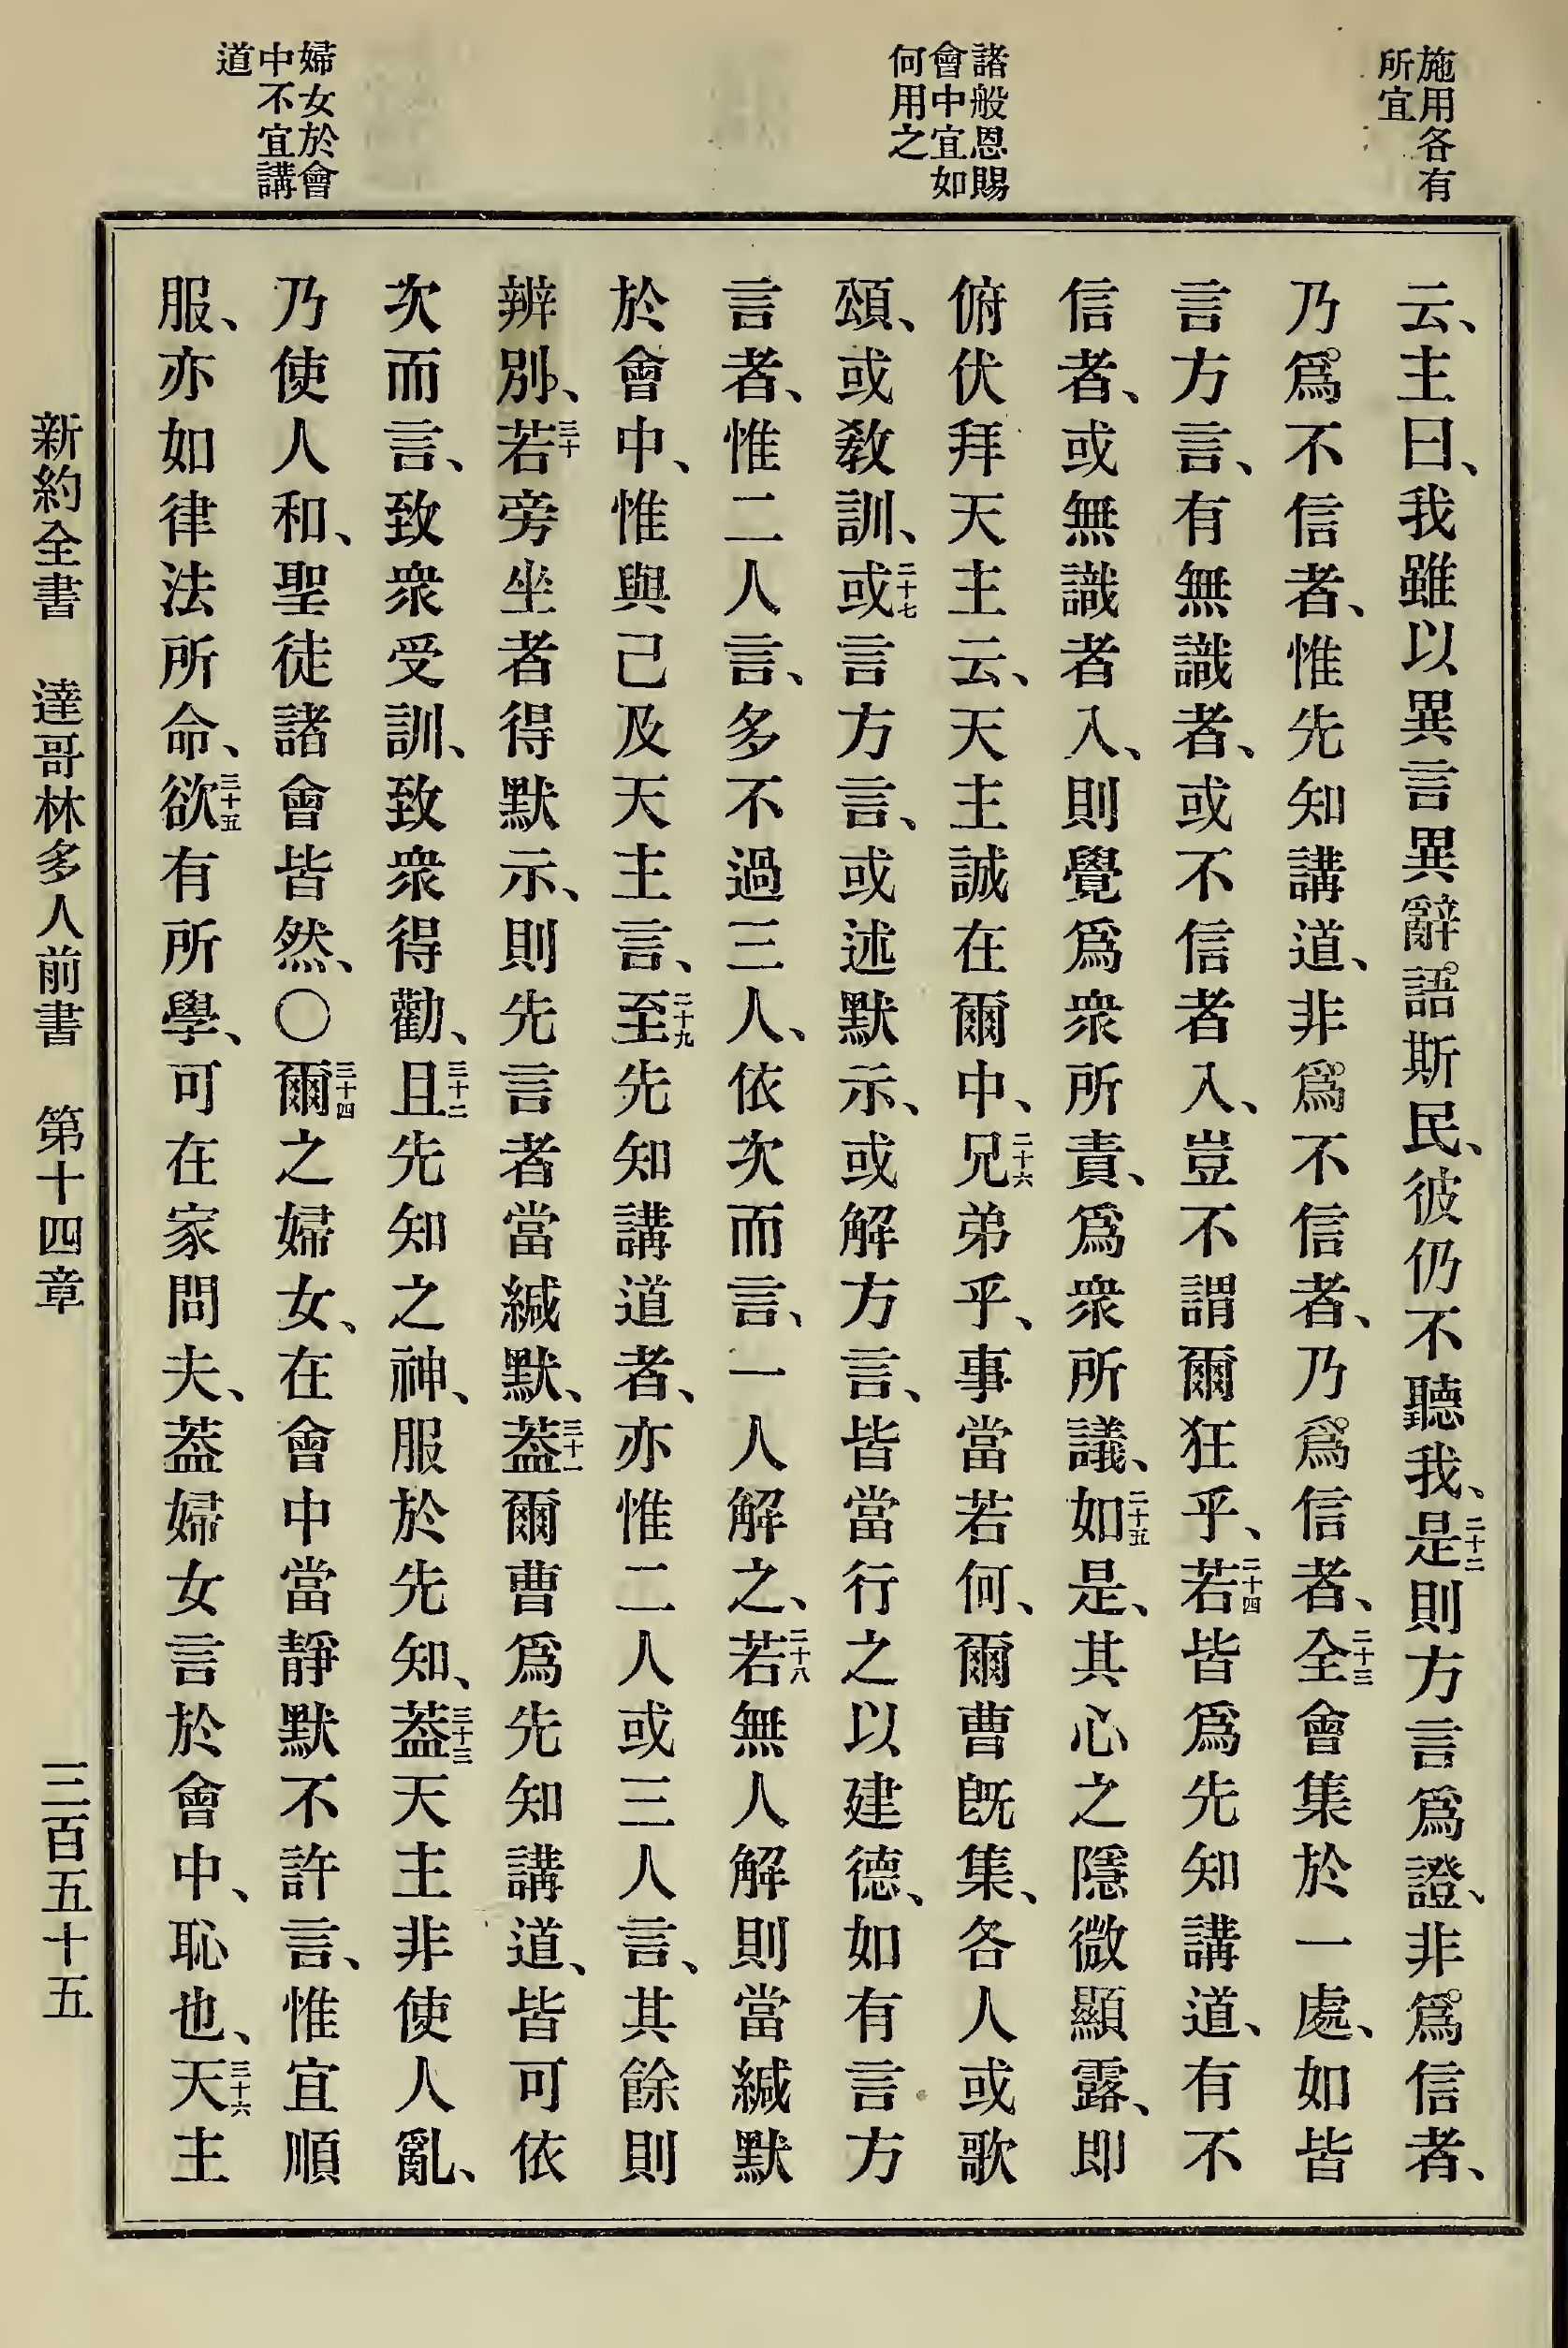 施用各有
所宜
諸般恩賜
會中宜如
何用之
婦女於會
中不宜講
道
云、主曰、我雖以異言異辭語斯民、彼仍不聽我、二十二是則方言爲證、非爲信者、
乃爲不信者、惟先知講道、非爲不信者、乃爲信者、二十三全會集於一處、如皆
言方言、有無識者、或不信者入、豈不謂爾狂乎、二十四若皆爲先知講道、有不
信者、或無識者入、則覺爲衆所責、爲衆所議、二十五如是、其心之隱微顯露、即
俯伏拜天主云、天主誠在爾中、二十六兄弟乎、事當若何、爾曹旣集、各人或歌
頌、或敎訓、二十七或言方言、或述默示、或解方言、皆當行之以建德、如有言方
言者、惟二人言、多不過三人、依次而言、一人解之、二十八若無人解則當緘默
於會中、惟與己及天主言、二十九至先知講道者、亦惟二人或三人言、其餘則
辨別、三十若旁坐者得默示、則先言者當緘默、三十一葢爾曹爲先知講道、皆可依
次而言、致衆受訓、致衆得勸、三十二且先知之神、服於先知、三十三葢天主非使人亂、
乃使人和、聖徒諸會皆然、〇三十四爾之婦女、在會中當靜默不許言、惟宜順
服、亦如律法所命、三十五欲有所學、可在家問夫、葢婦女言於會中、恥也、三十六天主
新約全書 達哥林多人前書 第十四章 三百五十五